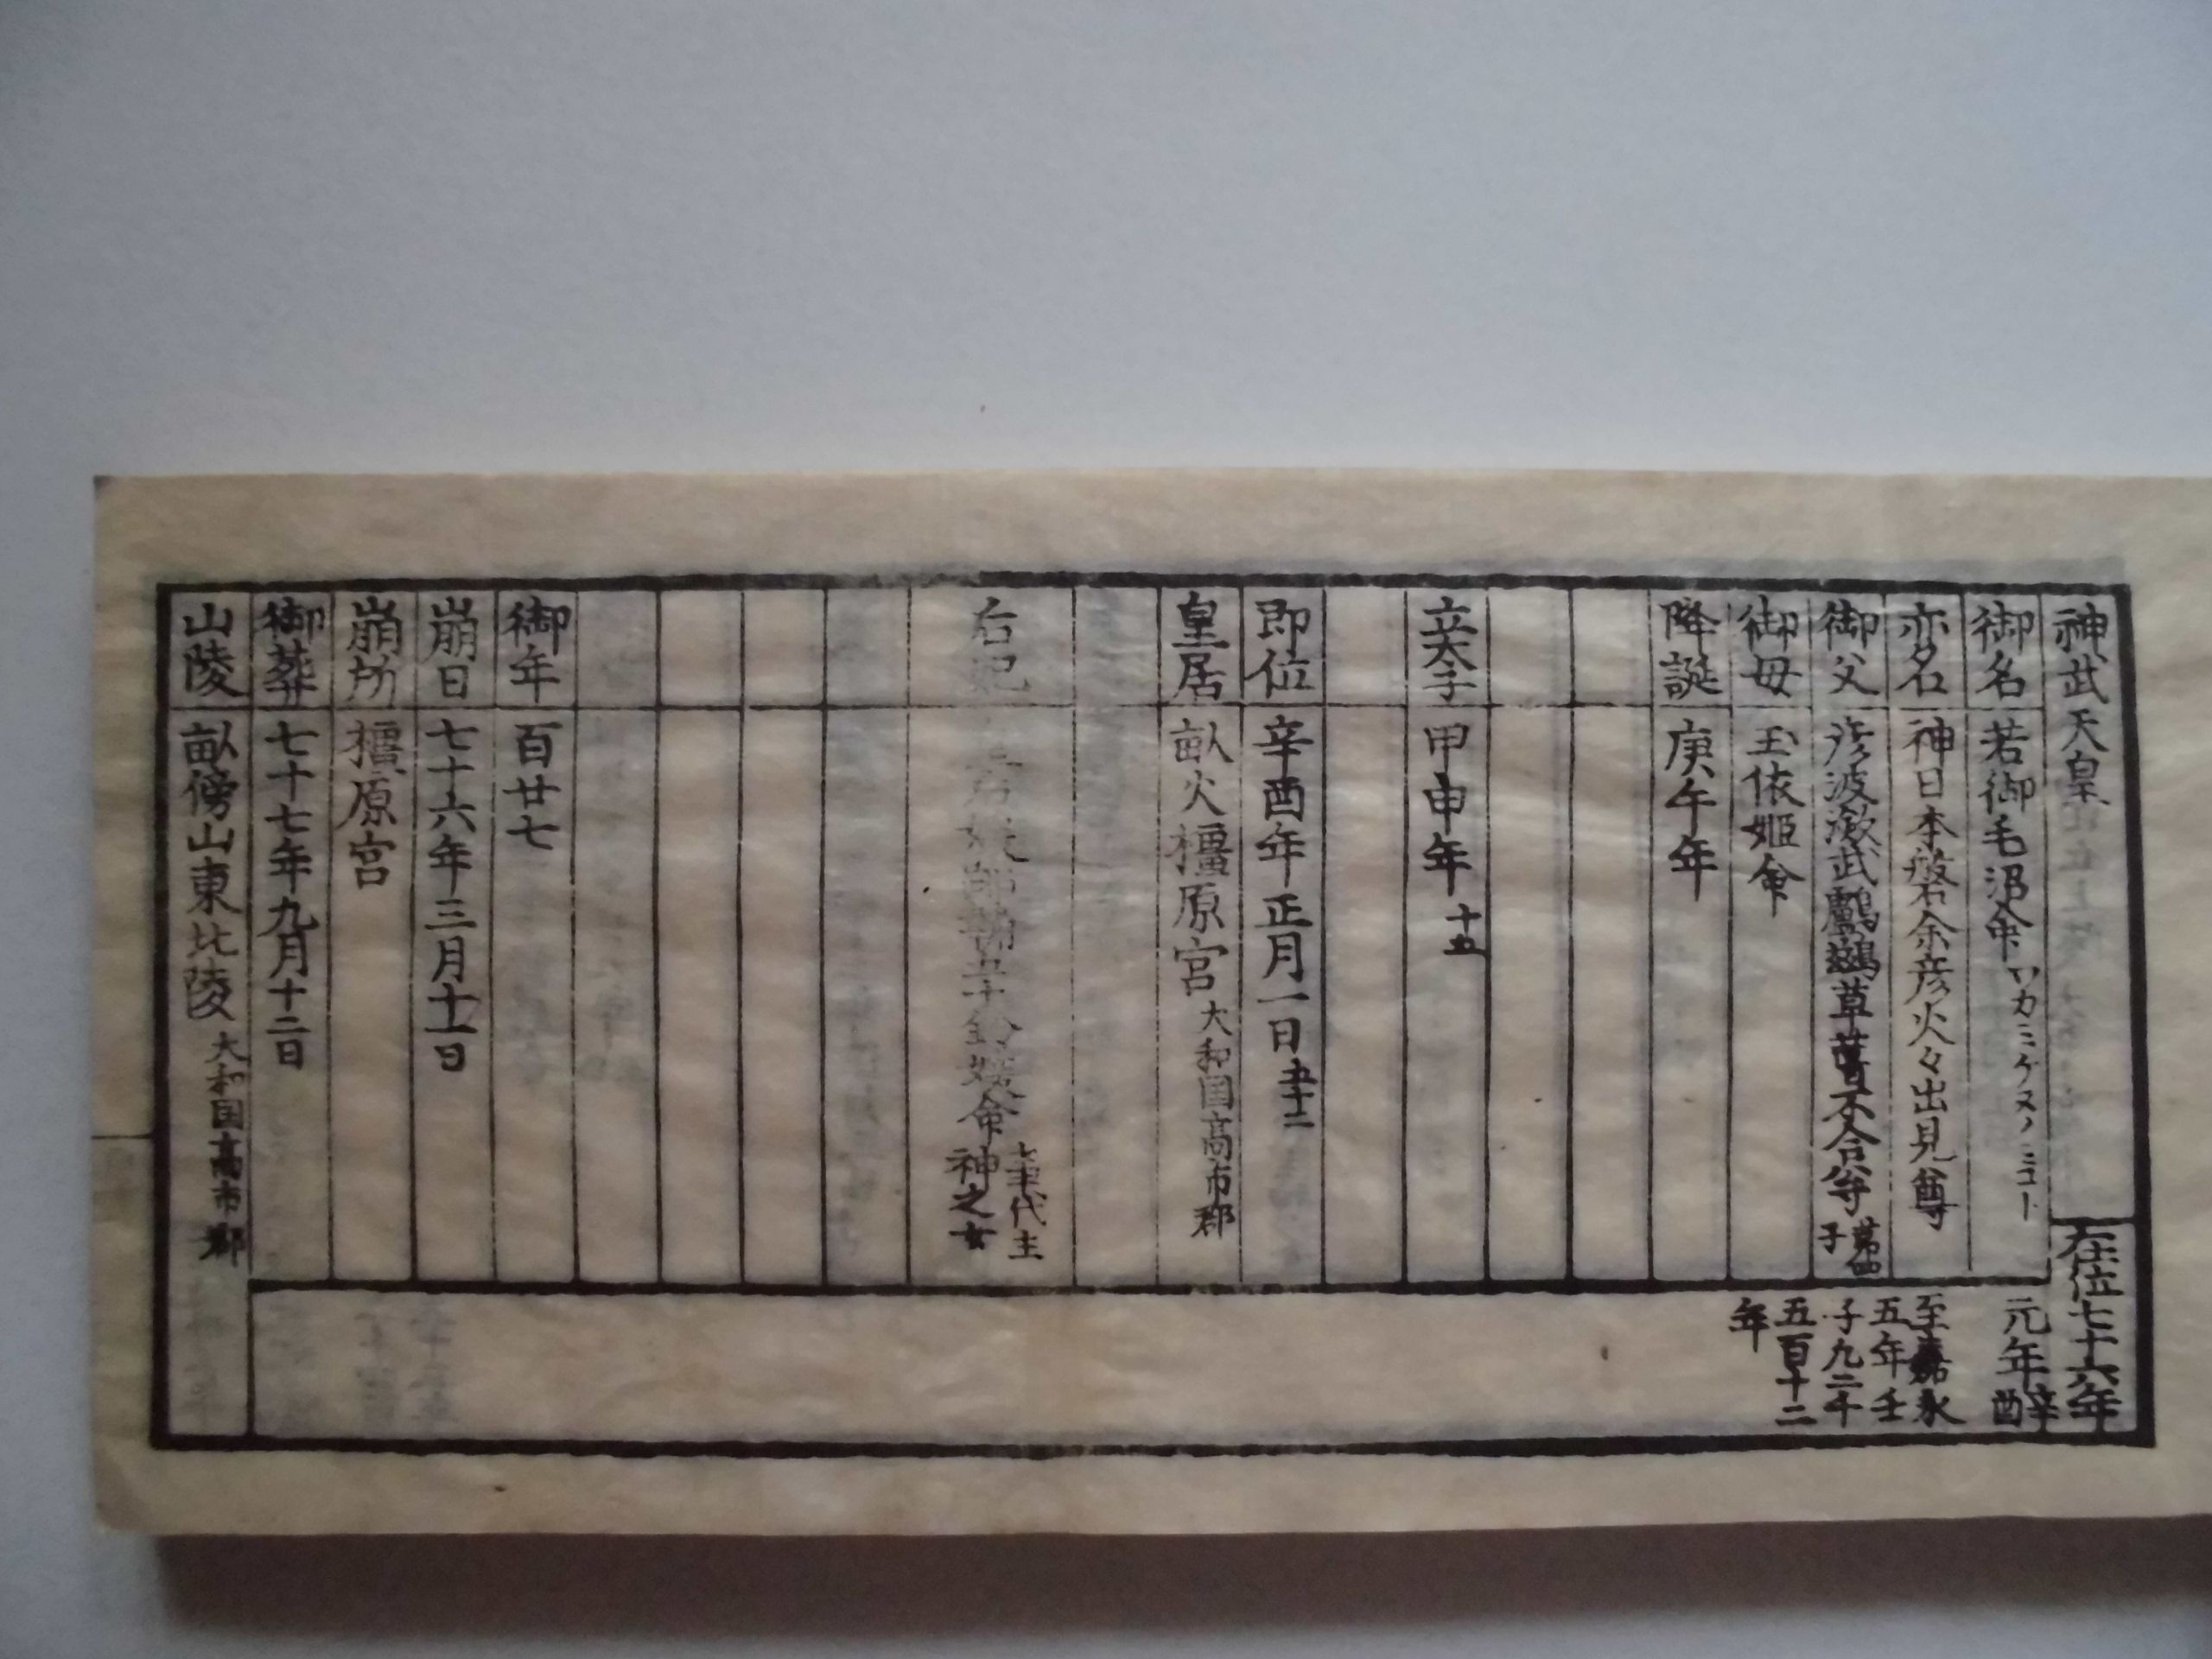 神武天皇
在位七十六年
御名 若御毛沼命 ワカミケヌノミコト
亦名 神日本磐余彦火々出見尊
御父 彦波瀲武鸕鷀草葺不合尊 第四子
御母 玉依姫命
降誕 庚午年
立太子 甲申年 十五
即位 辛酉年正月一日 五十二
皇居 畝火橿原宮 大和国高市郡
后妃 五十鈴媛命 事代主神之女
御年 百廿七
崩日 七十六年三月十一日
崩所 橿原宮
御葬 七十七年九月十二日
山陵 畝傍山東北陵 大和国高市郡
元年 辛酉
至嘉永
五年壬
子九二千
五百十二
年